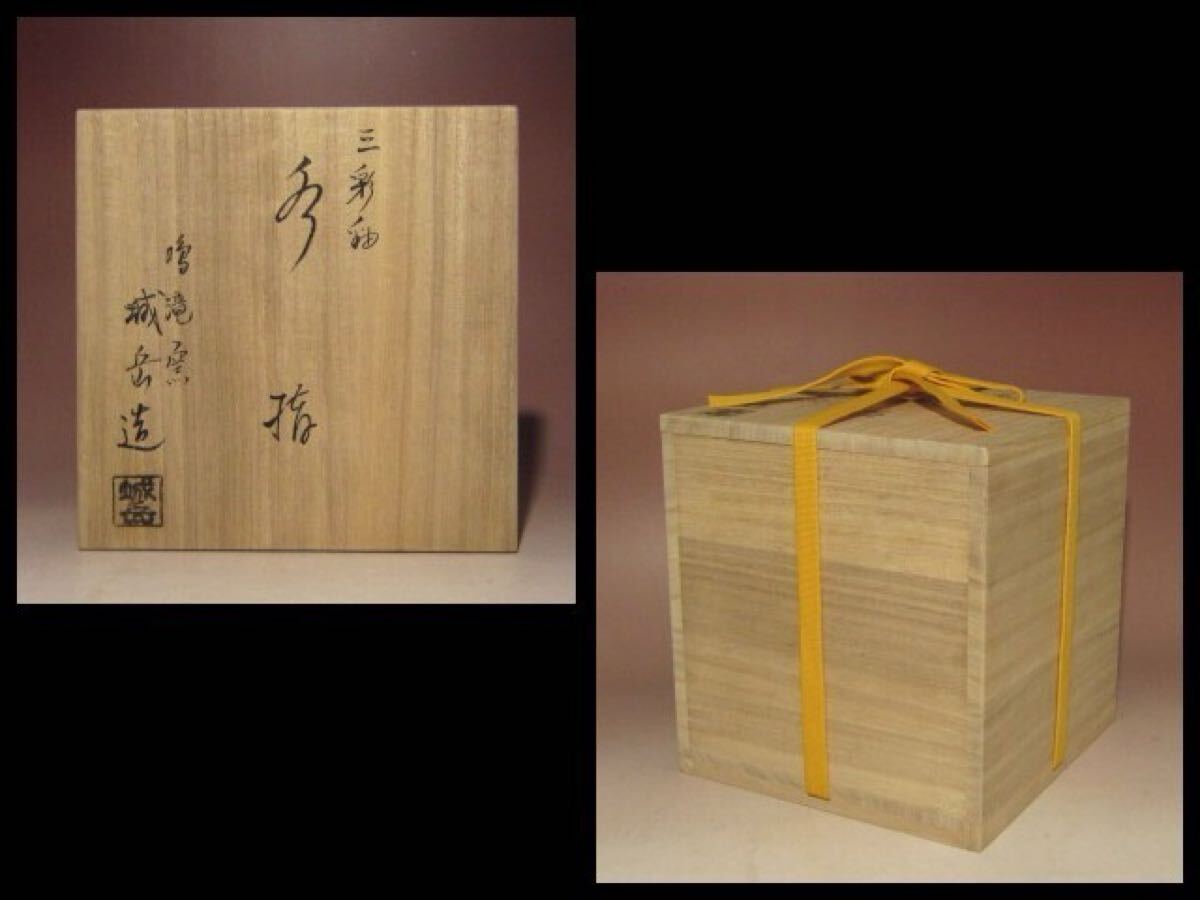 三彩釉
水指
鳴滝窯
城岳造
城岳